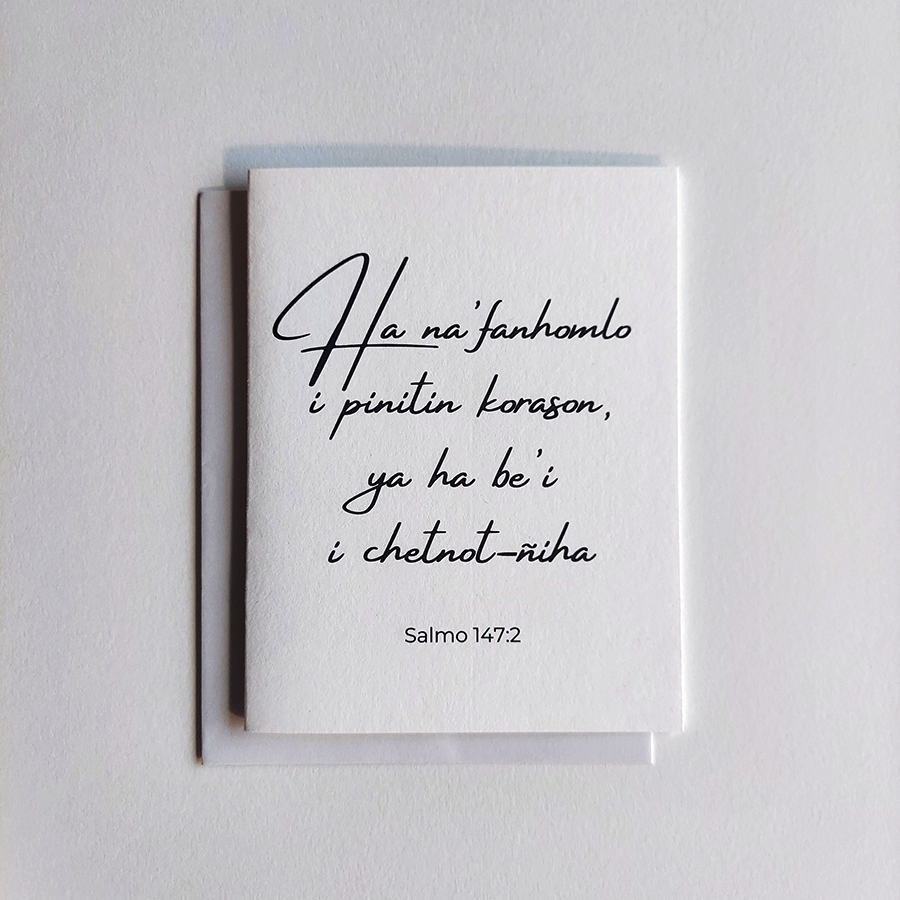 Ha na'fanhomlo
i pinitin korason,
ya ha be'i
i chetnot-ñiha
Salmo 147:2